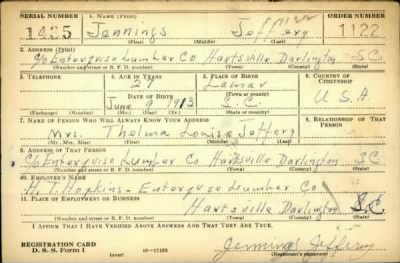 SERIAL NUMBER 1. NAME (Print) ORDER NUMBER
1435 Jennings Jeffery 1122
(First) (Middle) (Last)
2. ADDRESS (Print)
c/o Enterprise Lumber Co Hartsville Darlington S.C
(Number and street or R. F. D. number) (Town) (County) (State)
3. TELEPHONE 4. AGE IN YEARS 5. PLACE OF BIRTH 6. COUNTRY OF CITIZENSHIP
27 Lamar
DATE OF BIRTH (Town or county)
June 9 1913 S.C. U.S.A
(Exchange) (Number) (Mo.) (Day) (Yr.) (State or country)
7. NAME OF PERSON WHO WILL ALWAYS KNOW YOUR ADDRESS 8. RELATIONSHIP OF THAT PERSON
Mrs. Thelma Louise Jeffery
(Mr., Mrs., Miss) (First) (Middle) (Last)
9. ADDRESS OF THAT PERSON
C/o Enterprise Lumber Co Hartsville Darlington S.C
(Number and street or R. F. D. number) (Town) (County) (State)
10. EMPLOYER'S NAME
H. T. Hopkins - Enterprise Lumber Co
11. PLACE OF EMPLOYMENT OR BUSINESS
Hartsville Darlington S.C
(Number and street or R. F. D. number) (Town) (County) (State)
I AFFIRM THAT I HAVE VERIFIED ABOVE ANSWERS AND THAT THEY ARE TRUE.
REGISTRATION CARD
D. S. S. Form 1 (over) 16-17105
Jennings Jeffery
(Registrant's signature)